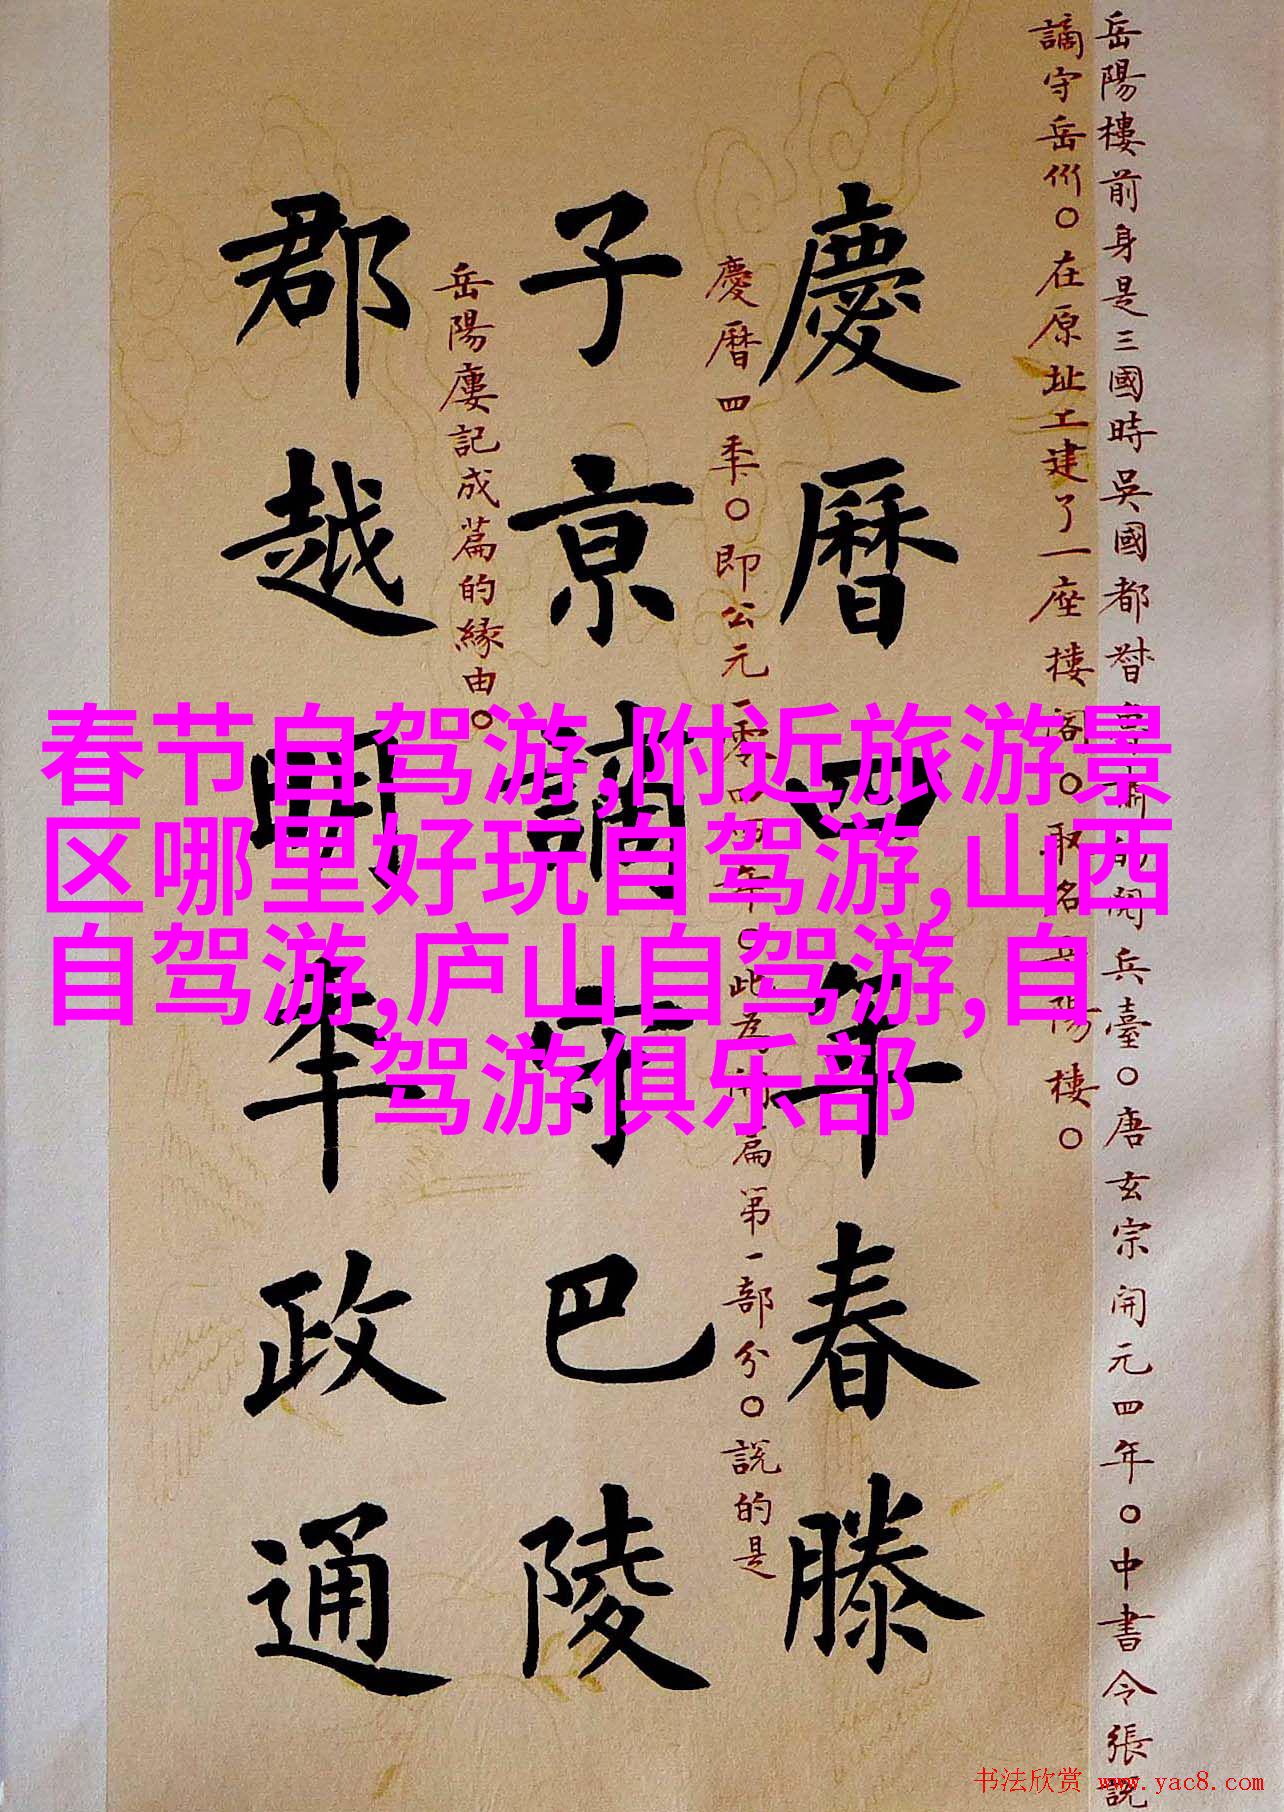 岳陽樓前身是三國時吳國都督魯肅的閱兵臺○唐玄宗開元四年○中書令張說
謫守岳州○在原址工建了一座樓閣○取名岳陽樓○
慶曆四年春滕
慶曆四秊○即公元一零四四年○此為開篇第一部份○說的是
子京謫守巴陵
岳陽廔記成篇的緣由○
郡越明秊政通
春节自驾游,附近旅游景
区哪里好玩自驾游,山西
自驾游,庐山自驾游,自
驾游俱乐部
书法欣赏 www.yac8.com